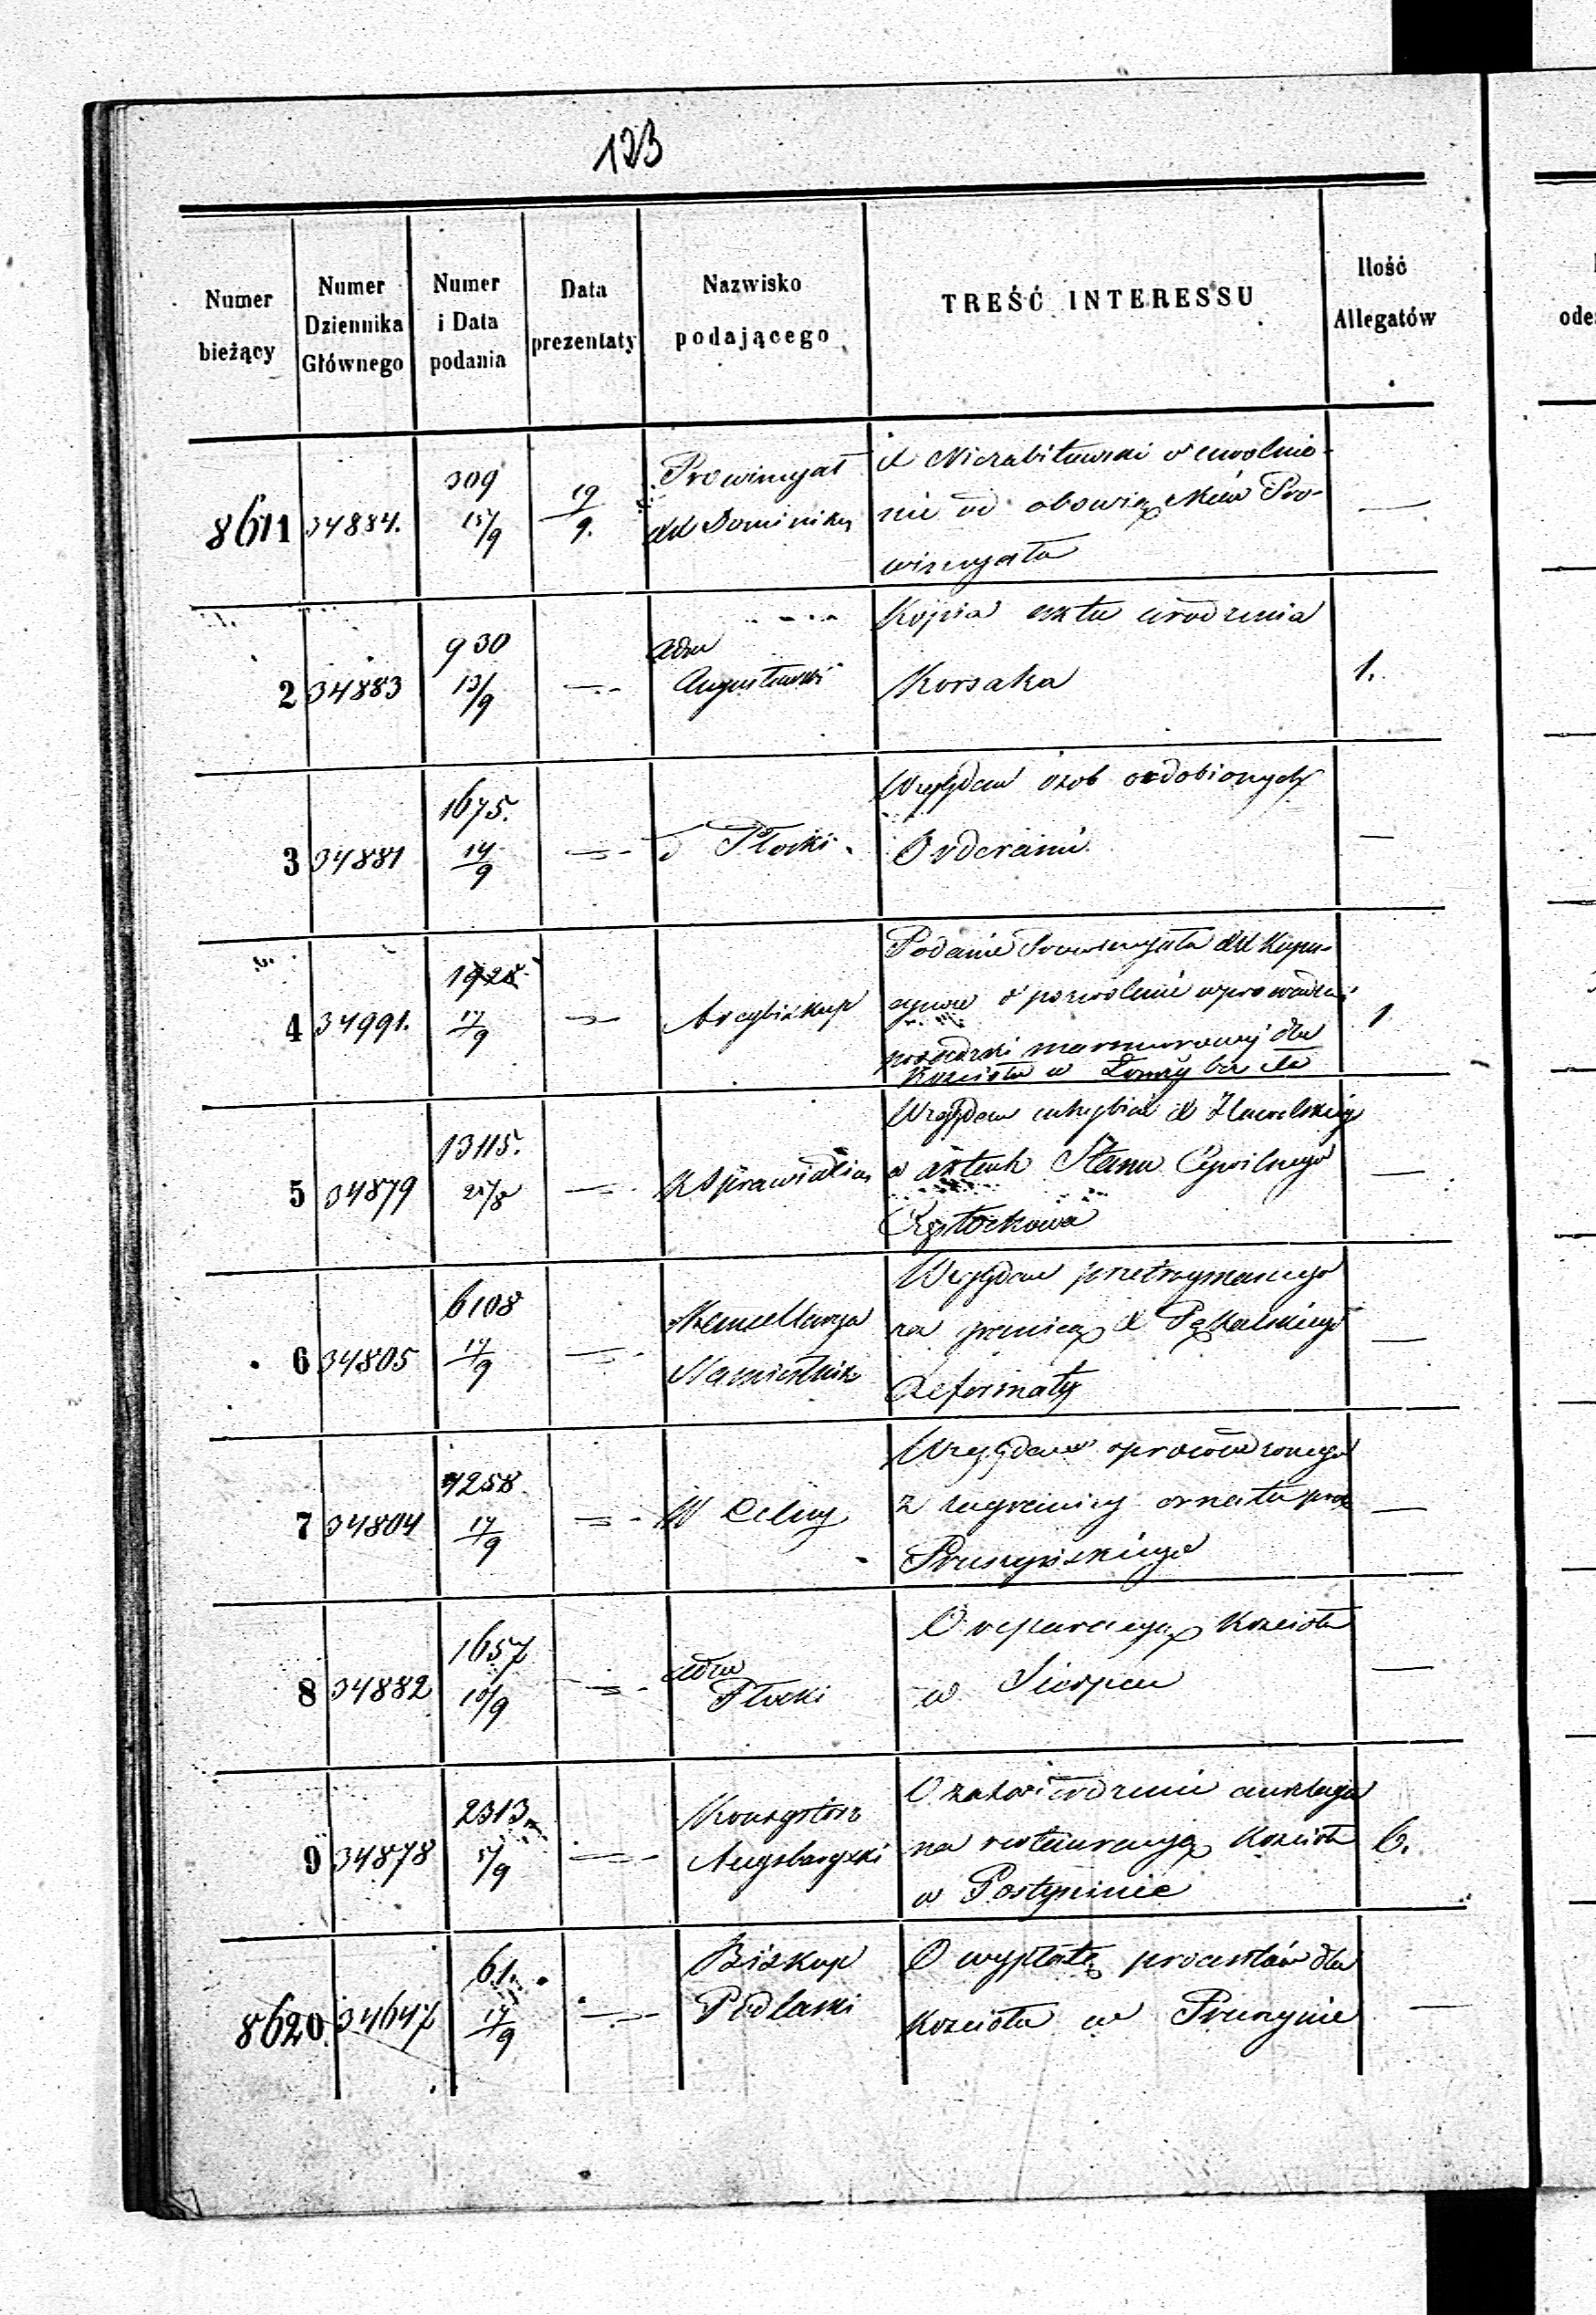 123
Numer bieżący | Numer Dziennika Głównego | Numer i Data podania | Data prezentaty | Nazwisko podającego | TREŚĆ INTERESSU | Ilość Allegatów
8611 | 34884. | 309 15/9 | 19/9. | Prowincyał XX Dominikan | X Niezabitowski o uwolnie-
nie od obowiązków Pro-
wincyała | —
2 | 34883 | 930 13/9 | — | Adm Augustowski | Kopia aktu urodzenia
Korsaka | 1.
3 | 34881 | 1675. 14/9 | — | d Płocki | Względem osób ozdobionych
Orderami | —
4 | 34991. | 1928 17/9 | — | Arcybiskup | Podanie Prowincyała XX Kapu-
cynow o pozwolenie wprowadzenia
posadzki marmurowej dla
Kościoła w Łomży | 1
5 | 34879 | 13115. 25/8 | — | K Sprawiedliw | Względem uchybień X
w aktach Stanu Cywilnego
Częstochowa | —
6 | 34805 | 6108 17/9 | — | Kancellarya Namiestnika | Względem przetrzymanego
za granicą X Pękalskiego
Reformaty | —
7 | 34804 | 4258. 17/9 | — | W Celny | Względem sprowadzonego
z zagranicy ornatu przez
Pruszyńskiego | —
8 | 34882 | 1657 10/9 | — | Adm Płocki | O reparacyą Kościoła
w Sierpcu | —
9 | 34878 | 2313 5/9 | — | Konsystorz Augsburgski | O zatwierdzenie anszlagu
na restauracyją Kościoła
w Gostyninie | 6.
8620. | 34647 | 61. 17/9 | — | Biskup Podlaski | O wypłatę procentów dla
Kościoła w Pruszynie | —